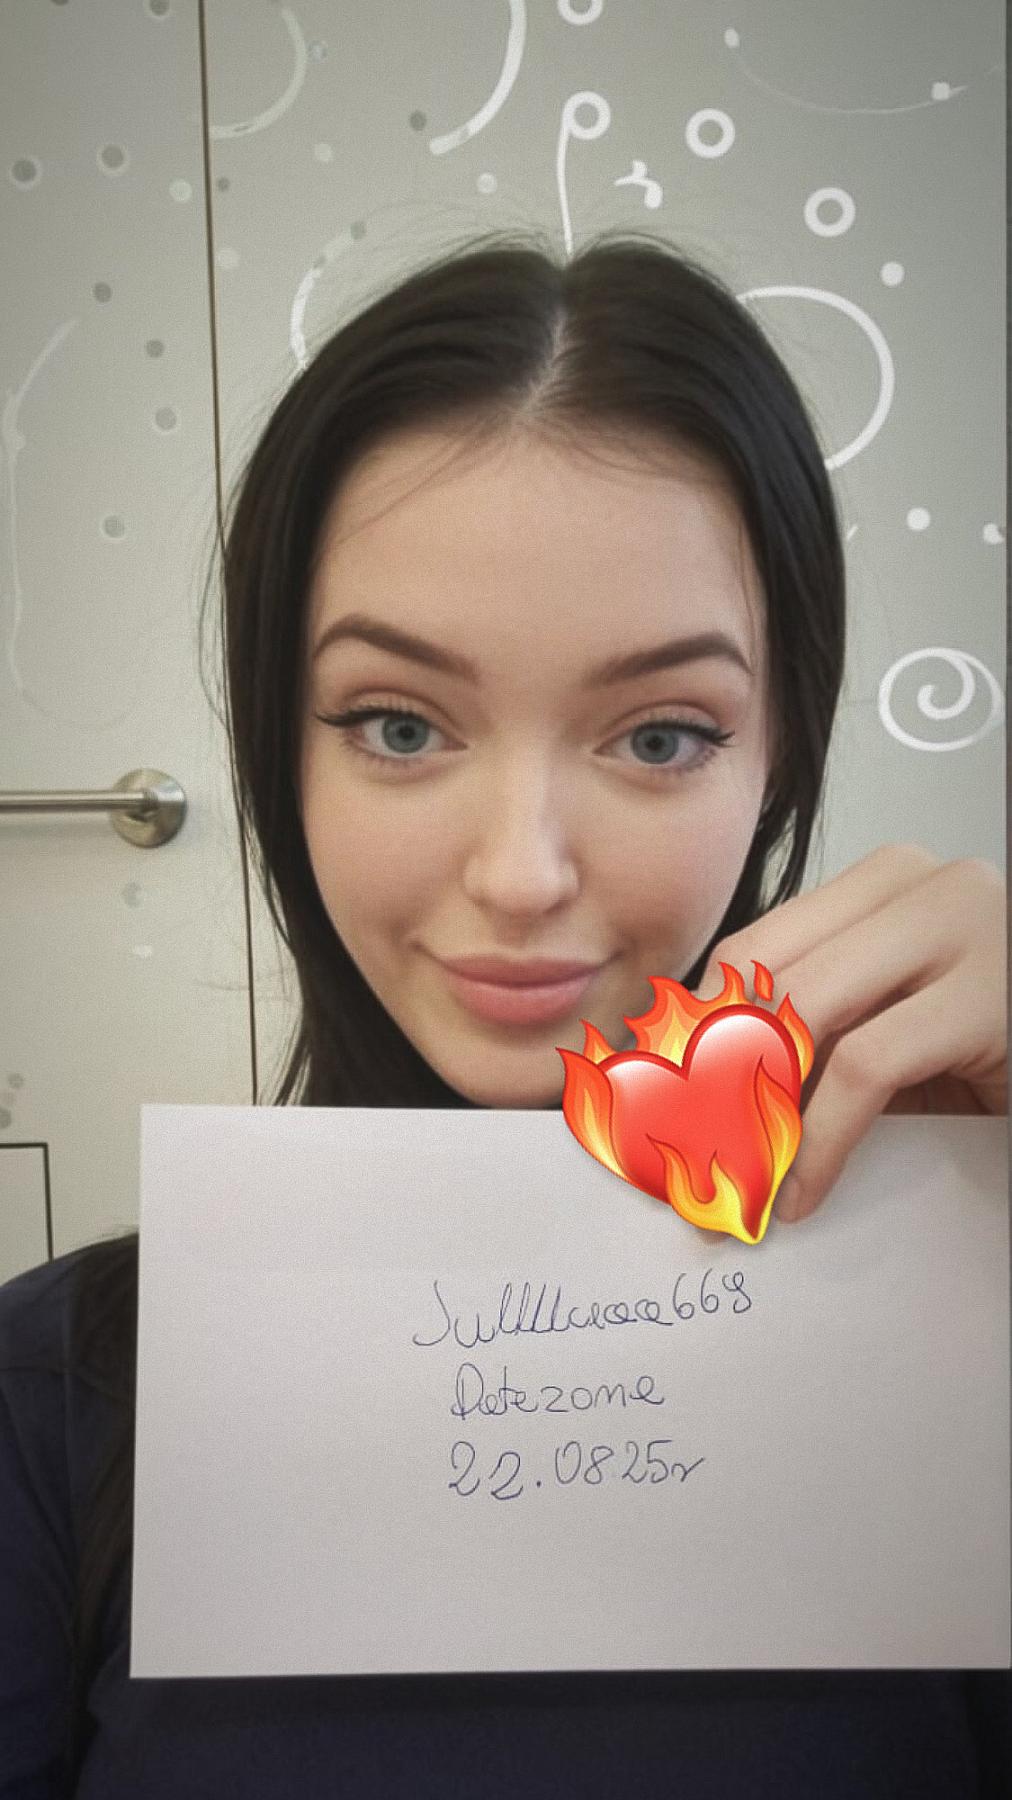 Julllluaaa669
Datezone
22.0825r